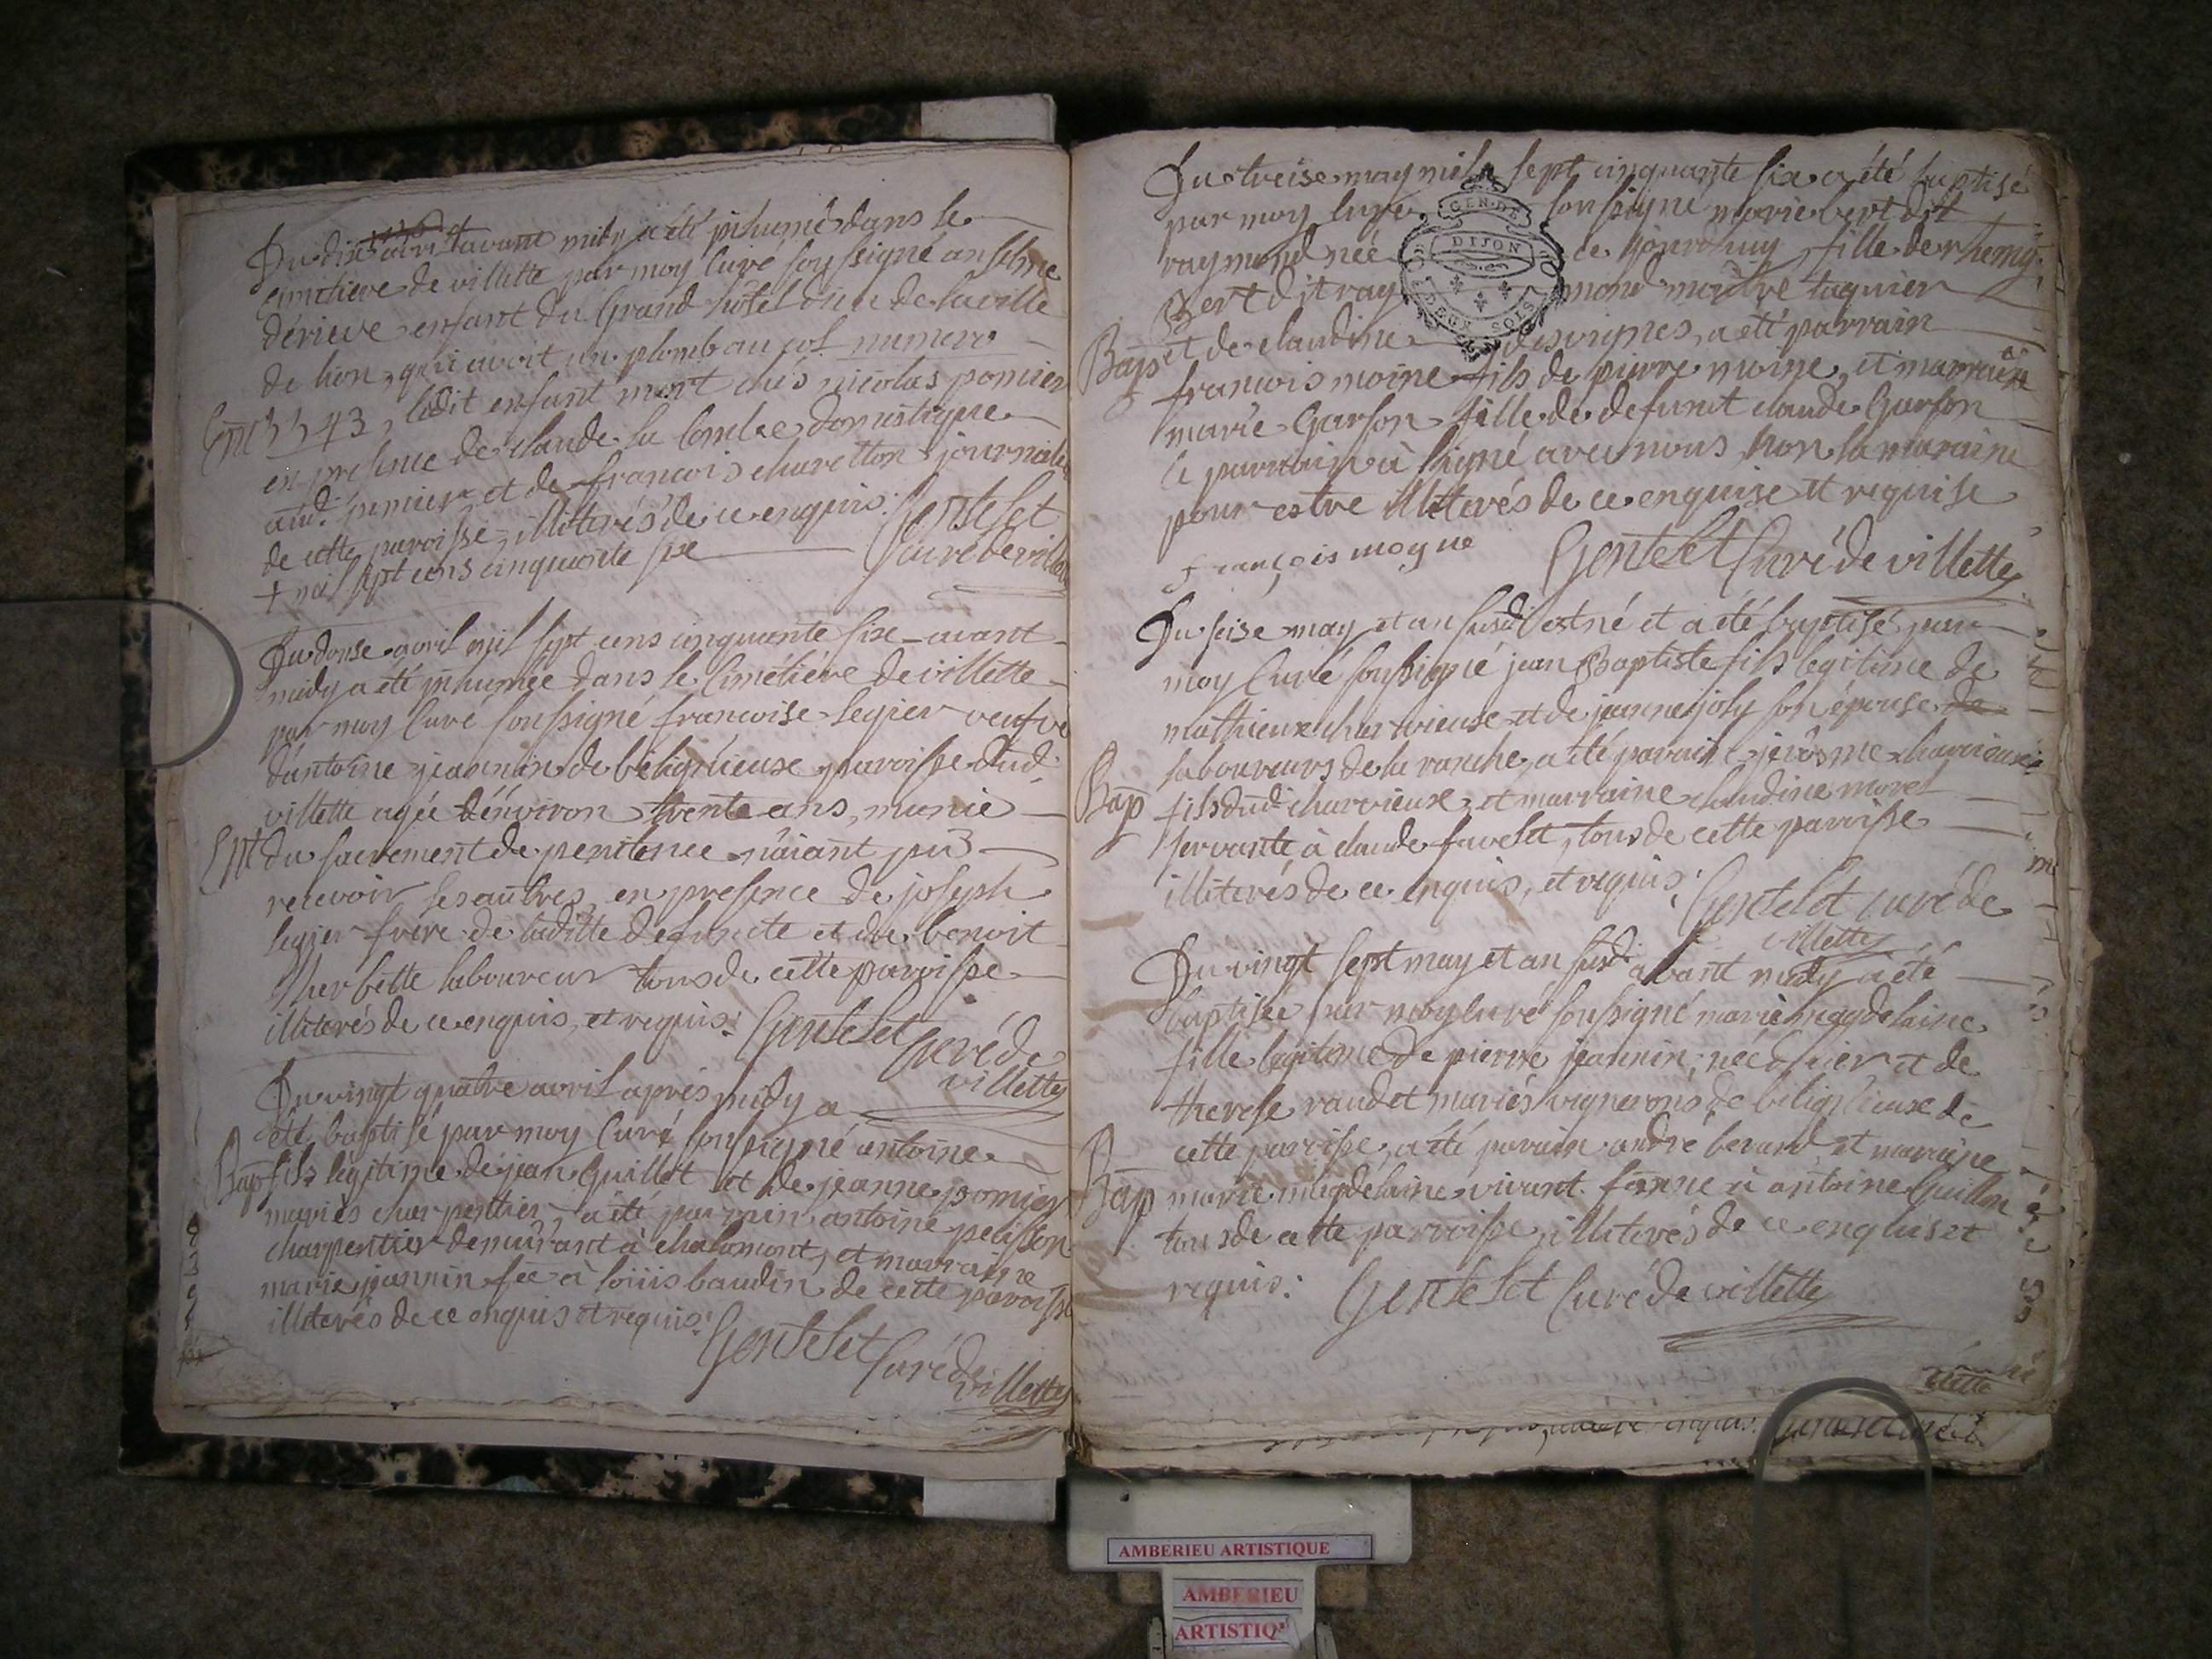 Du dix avril + avant midy a été inhumé dans le
cimetiere de villette par moy curé soussigné anthelme
dérieve enfant du Grand hôtel dieu de la ville
de lion, qui avoit un plomb au col numero
Ent 3343, ledit enfant mort chés nicolas pomier
en presence de claude la combe domestique
aud. pomier et de francois charetton journalier
de cette paroisse, illiterés de ce enquis: Gentelet
+ mil sept cens cinquante six curé de villette
Du donse avril mil sept cens cinquante six avant
midy a été inhumée dans le Cimétiére de villette
par moy Curé soussigné francoise legier veufve
d'antoine jeannin de béligneuse paroisse dud.
villette agée d'énviron trente ans, munie
Ent du sacrement de penitence n'aiant pu
recevoir les autres, en presence de joseph
legier frere de laditte defuncte et de benoit
herbette laboureur tous de cette paroisse
illiterés de ce enquis, et requis: Gentelet curé de
villette
Du vingt quatre avril aprés midy a
été baptisé par moy Curé soussigné antoine
Bap fils légitime de jean Guillot et de jeanne pomier
mariés charpentier, a été parrain antoine pelisson
charpentier demeurant à chalamont, et marraine
marie jeannin fée à loüis baudin de cette paroisse
illiterés de ce enquis et requis: Gentelet Curé de
villette
Du treise may mil sept cinquante six a été baptisé
par moy Curé soussigné marie bert dit
raymond née ce jourd'huy, fille de rhemy
Bert dit raymond maitre taquier
Bap et de claudine desvignes, a été parrain
francois moine fils de pierre moine, et marraine
marie Garson fille de defunct claude Garson
le parrain à signé avec nous, non la maraine
pour estre illiterés de ce enquise et requise
françois moyne Gentelet Curé de villette
Du seise may et an susd. est né et a été baptisé par
moy Curé soussigné jean Baptiste fils legitime de
mathieux charvieux et de jeanne joly son épouse
laboureurs de la ranche, a été parain jerôsme charvieux
Bap fils dud. charvieux et marraine claudine morel
servante à claude favelet, tous de cette paroisse
illiterés de ce enquis, et requis: Gentelet curé de
villette
Du vingt sept may et an susd. avant midy a été
baptisée par moy curé soussigné marie magdelaine
fille legitime de pierre jeannin, née d'hier et de
therese raudet mariés vignerons de béligneuse de
cette paroisse, a été parain andré berard et maraine
Bap marie magdelaine vivant femme à antoine Guillon
tous de cette parroisse, illiterés de ce enquis et
requis: Gentelet Curé de villette
GEN DE
DIJON
DEUX SOLS
AMBERIEU ARTISTIQUE
AMBERIEU
ARTISTIQ